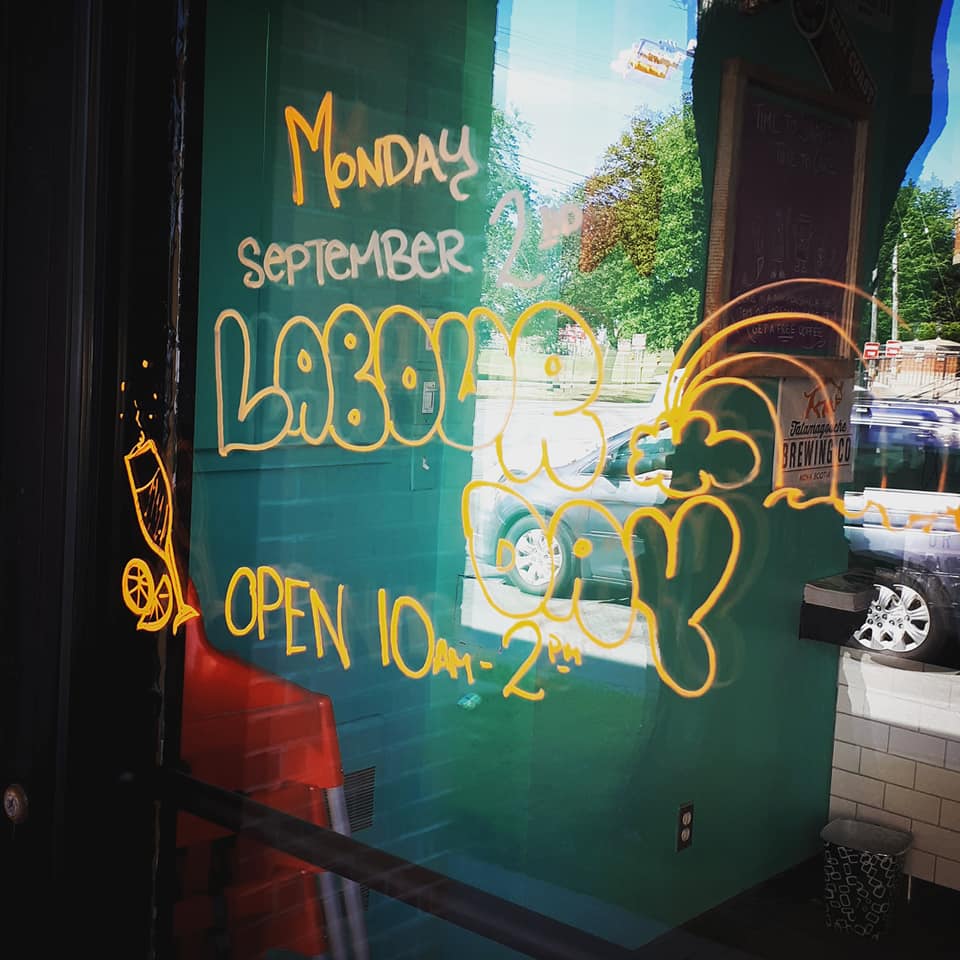 Monday
September 2ND
LABOUR
DAY
OPEN 10AM - 2PM
GET A FREE COFFEE
Tatamagouche
BREWING CO
NOVA SCOTIA